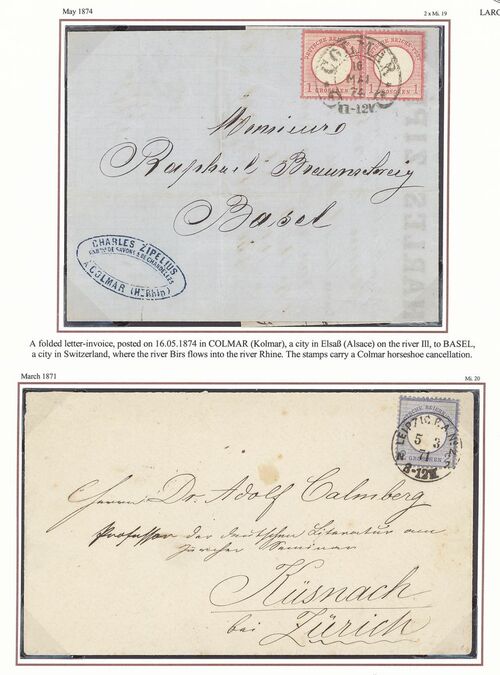 May 1874
2 x Mi. 19
LARG
DEUTSCHE REICHS-POST
1 1
GROSCHEN
DEUTSCHE REICHS-POST
1 1
GROSCHEN
COLMAR
16
MAI
74
11-12V.
Monsieur
Raphael Braunschweig
Basel
CHARLES ZIPELIUS
FABQUE DE SAVONS & DE CHANDELLES
A COLMAR (Ht Rhin)
A folded letter-invoice, posted on 16.05.1874 in COLMAR (Kolmar), a city in Elsaß (Alsace) on the river Ill, to BASEL,
a city in Switzerland, where the river Birs flows into the river Rhine. The stamps carry a Colmar horseshoe cancellation.
March 1871
Mi. 20
DEUTSCHE REICHS-POST
GROSCHEN
LEIPZIG P.A.
5 3
71
8-12V.
Herrn Dr. Adolf Calmberg
Professor der deutschen Literatur am
Züricher Seminar
Küsnach
bei
Zürich